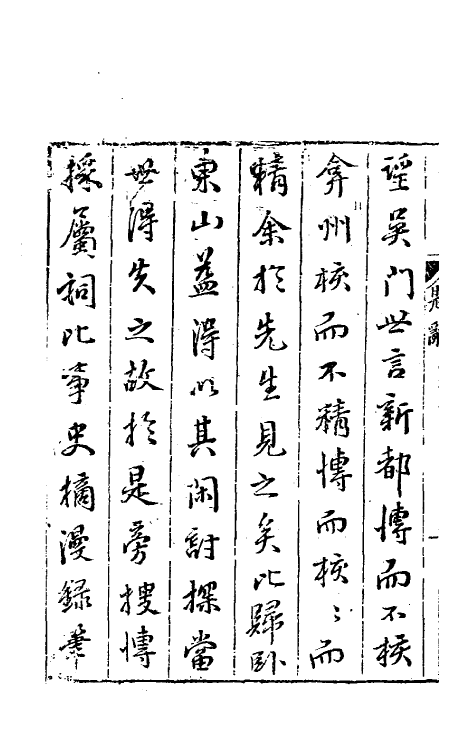 誣吳門世言新都博而不核
弇州核而不精博而核〻而
精余於先生見之矣比歸臥
東山益得以其閑討探當
世得失之故於是旁搜博
採屬詞比事史摘漫録業